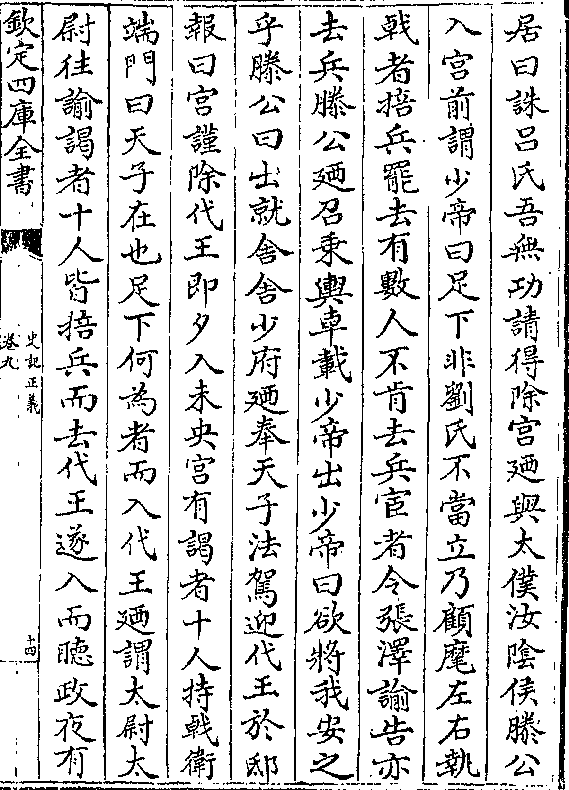 居曰誅吕氏吾無功請得除宫廼與太僕汝隂侯滕公
入宫前謂少帝曰足下非劉氏不當立乃顧麾左右執
㦸者掊兵罷去有數人不肯去兵宦者令張澤諭告亦
去兵滕公廼召乗輿車載少帝出少帝曰欲將我安之
乎滕公曰出就舍舍少府廼奉天子法駕迎代王於邸
報曰宫謹除代王即夕入未央宫有謁者十人持㦸衛
端門曰天子在也足下何為者而入代王廼謂太尉太
尉往諭謁者十人皆掊兵而去代王遂入而聴政夜有
欽定四庫全書
史記正義
卷九
十四